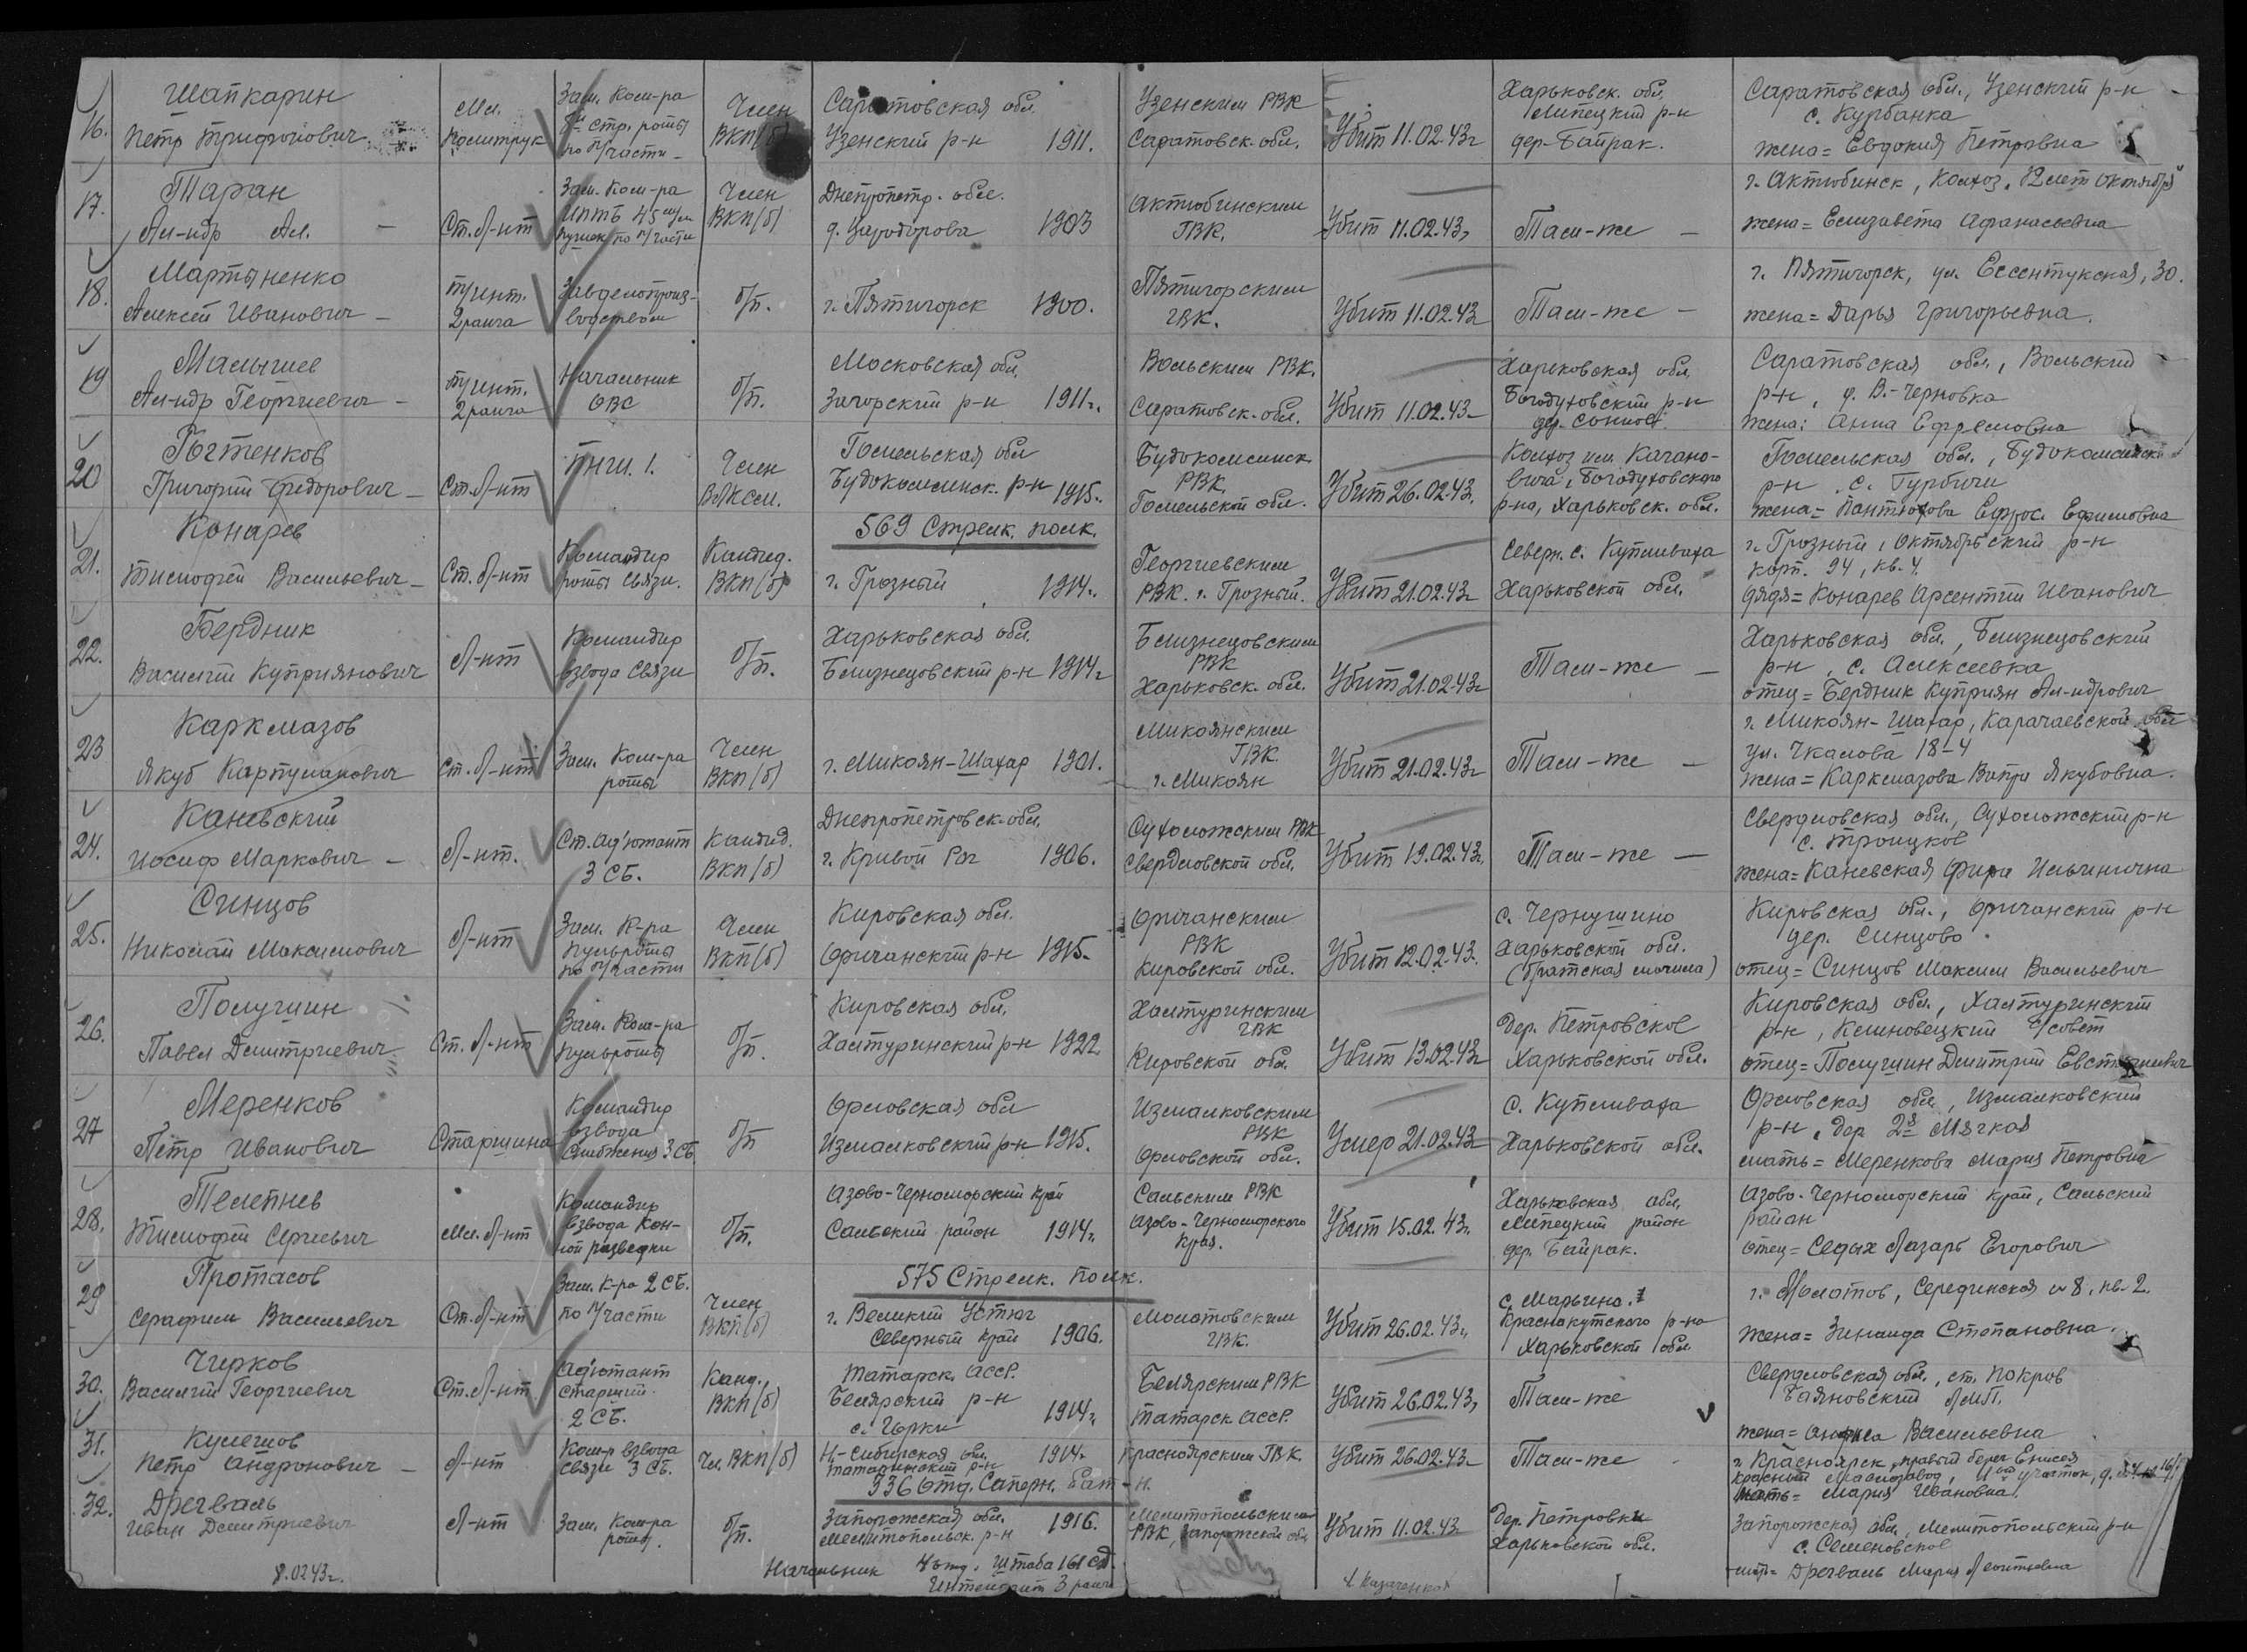 16. Шапкарин
Петр Трифонович
Мл.
Политрук
Зам. Ком-ра
стр. роты
по п/части
Член
ВКП(б)
Саратовская обл.
Узенский р-н 1911.
Узенским РВК
Саратовск. обл.
Убит 11.02.43г
Харьковск. обл.
Липецкий р-н
дер. Байрак.
Саратовская обл., Узенский р-н
с. Курбанка
жена = Евдокия Петровна
17. Таран
Ал-ндр Ал. –
Ст. Л-нт
Зам. Ком-ра
45 м/м
пушек по п/части
Член
ВКП(б)
Днепропетр. обл.
1903
Актюбинским
ГВК.
Убит 11.02.43г
Там-же –
г. Актюбинск, Колхоз "12 лет Октября"
жена = Елизавета Афанасьевна
18. Мартыненко
Алексей Иванович –
т/инт.
2 ранга
Завделопроиз-
водством
б/п.
г. Пятигорск 1900.
Пятигорским
ГВК.
Убит 11.02.43г
Там-же –
г. Пятигорск, ул. Ессентукская, 30.
жена = Дарья Григорьевна.
19 Малышев
Ал-ндр Георгиевич –
т/инт.
2 ранга
Начальник
ОВС
б/п.
Московская обл.
Загорский р-н 1911г.
Вольским РВК.
Саратовск. обл.
Убит 11.02.43г
Харьковская обл.
Богодуховский р-н
дер.
Саратовская обл., Вольский
р-н, д. В.-Черновка
жена: Анна Ефремовна
20 Гогтенков
Григорий Федорович –
Ст. Л-нт
ПНШ. 1.
Член
ВЛКСМ.
Гомельская обл
Будокомелинск. р-н 1915.
Будокомелинск.
РВК,
Гомельской обл.
Убит 26.02.43г.
Колхоз им. Кагано-
вича, Богодуховского
р-на, Харьковск. обл.
Гомельская обл., Будокомелинск
р-н, с. Гурбичи
жена = Пантюхова Ефрос. Ефимовна
569 Стрелк. полк.
21. Конарев
Тимофей Васильевич –
Ст. Л-нт
Командир
роты связи.
Кандид.
ВКП(б)
г. Грозный 1914г.
Георгиевским
РВК. г. Грозный.
Убит 21.02.43г
Северн. с. Купеваха
Харьковской обл.
г. Грозный, Октябрьский р-н
корп. 94, кв. 4.
дядя = Конарев Арсентий Иванович
22. Бердник
Василий Куприянович
Л-нт
Командир
взвода связи
б/п.
Харьковская обл.
Близнецовский р-н 1914г
Близнецовским
РВК
Харьковск. обл.
Убит 21.02.43г
Там-же –
Харьковская обл., Близнецовский
р-н, с. Алексеевка
отец = Бердник Куприян Ал-ндрович
23 Каркмазов
Якуб
Ст. Л-нт
Зам. Ком-ра
роты
Член
ВКП(б)
г. Микоян-Шахар 1901.
Микоянским
ГВК.
г. Микоян
Убит 21.02.43г
Там-же –
г. Микоян-Шахар, Карачаевской обл
ул. Чкалова 18-4
жена = Каркмазова Якубовна.
24. Каневский
Иосиф Маркович –
Л-нт.
Ст. ад'ютант
3 СБ.
Кандид.
ВКП(б)
Днепропетровск. обл.
г. Кривой Рог 1906.
Сухоложским РВК
Свердловской обл.
Убит 19.02.43г.
Там-же –
Свердловская обл., Сухоложский р-н
с. Троицкое
жена = Каневская Фира Ильинична
25. Синцов
Николай Максимович
Л-нт
Зам. К-ра
пульроты
по п/части
Член
ВКП(б)
Кировская обл.
Оричанский р-н 1915.
Оричанским
РВК
Кировской обл.
Убит 12.02.43г.
с. Чернушино
Харьковской обл.
(братская могила)
Кировская обл., Оричанский р-н
дер. Синцово.
отец = Синцов Максим Васильевич
26. Полушин
Павел Дмитриевич
Ст. Л-нт
Зам. Ком-ра
пульроты
б/п.
Кировская обл.
Халтуринский р-н 1922
Халтуринским
ГВК
Кировской обл.
Убит 13.02.43г
Дер. Петровское
Харьковской обл.
Кировская обл., Халтуринский
р-н, Климовецкий с/совет
отец = Полушин Дмитрий
27 Меренков
Петр Иванович
Старшина
Командир
взвода
снабжения 3 СБ.
б/п
Орловская обл
Измалковский р-н 1915.
Измалковским
РВК
Орловской обл.
Умер 21.02.43г
с. Купеваха
Харьковской обл.
Орловская обл., Измалковский
р-н, дер 2я Мягкая
мать = Меренкова Мария Петровна
28. Телепнев
Тимофей Сергеевич
Мл. Л-нт
Командир
взвода кон-
ной разведки
б/п.
Азово-Черноморский край
Сальский район 1914г.
Сальским РВК
Азово-Черноморского
края.
Убит 15.02.43г.
Харьковская обл.
Липецкий район
дер. Байрак.
Азово-Черноморский край, Сальский
район
отец = Седых Лазарь Егорович
575 Стрелк. полк.
29 Протасов
Серафим Васильевич
Ст. Л-нт
Зам. К-ра 2 СБ.
по п/части
Член
ВКП(б)
г. Великий Устюг
Северный край 1906.
Молотовским
ГВК.
Убит 26.02.43г.
с. Марьино.
Краснокутского р-на
Харьковской обл.
г. Молотов, Серединская 8, кв. 2.
жена = Зинаида Степановна.
30. Чирков
Василий Георгиевич
Ст. Л-нт
Ад'ютант
старший.
2 СБ.
Канд.
ВКП(б)
Татарск. АССР.
Билярский р-н
с. Горки 1914г
Билярским РВК
Татарск АССР.
Убит 26.02.43г
Там-же
Свердловская обл., ст. Покров
Баяновский ЛМП.
жена = Анфиса Васильевна
31. Кулешов
Петр Андронович –
Л-нт
Ком-р взвода
связи 3 СБ.
Чл. ВКП(б)
Н-Сибирская обл. 1914г
Татарский р-н
Красноярским ГВК.
Убит 26.02.43г
Там-же
г. Красноярск, правый берег Енисея
Красный участок,
мать = Мария Ивановна.
336 Отд. Саперн. бат-н.
32. Дрегваль
Иван Дмитриевич
Л-нт
Зам. Ком-ра
роты.
б/п.
Запорожская обл.
Мелитопольск. р-н 1916.
Мелитопольским
РВК, Запорожской обл
Убит 11.02.43г
Дер. Петровки
Харьковской обл.
Запорожская обл., Мелитопольский р-н
с. Семеновское
мать = Дрегваль Мария Леонтьевна
8.02.43г.
Начальник 4 отд. Штаба 161 СД.
Интендант 3 ранга